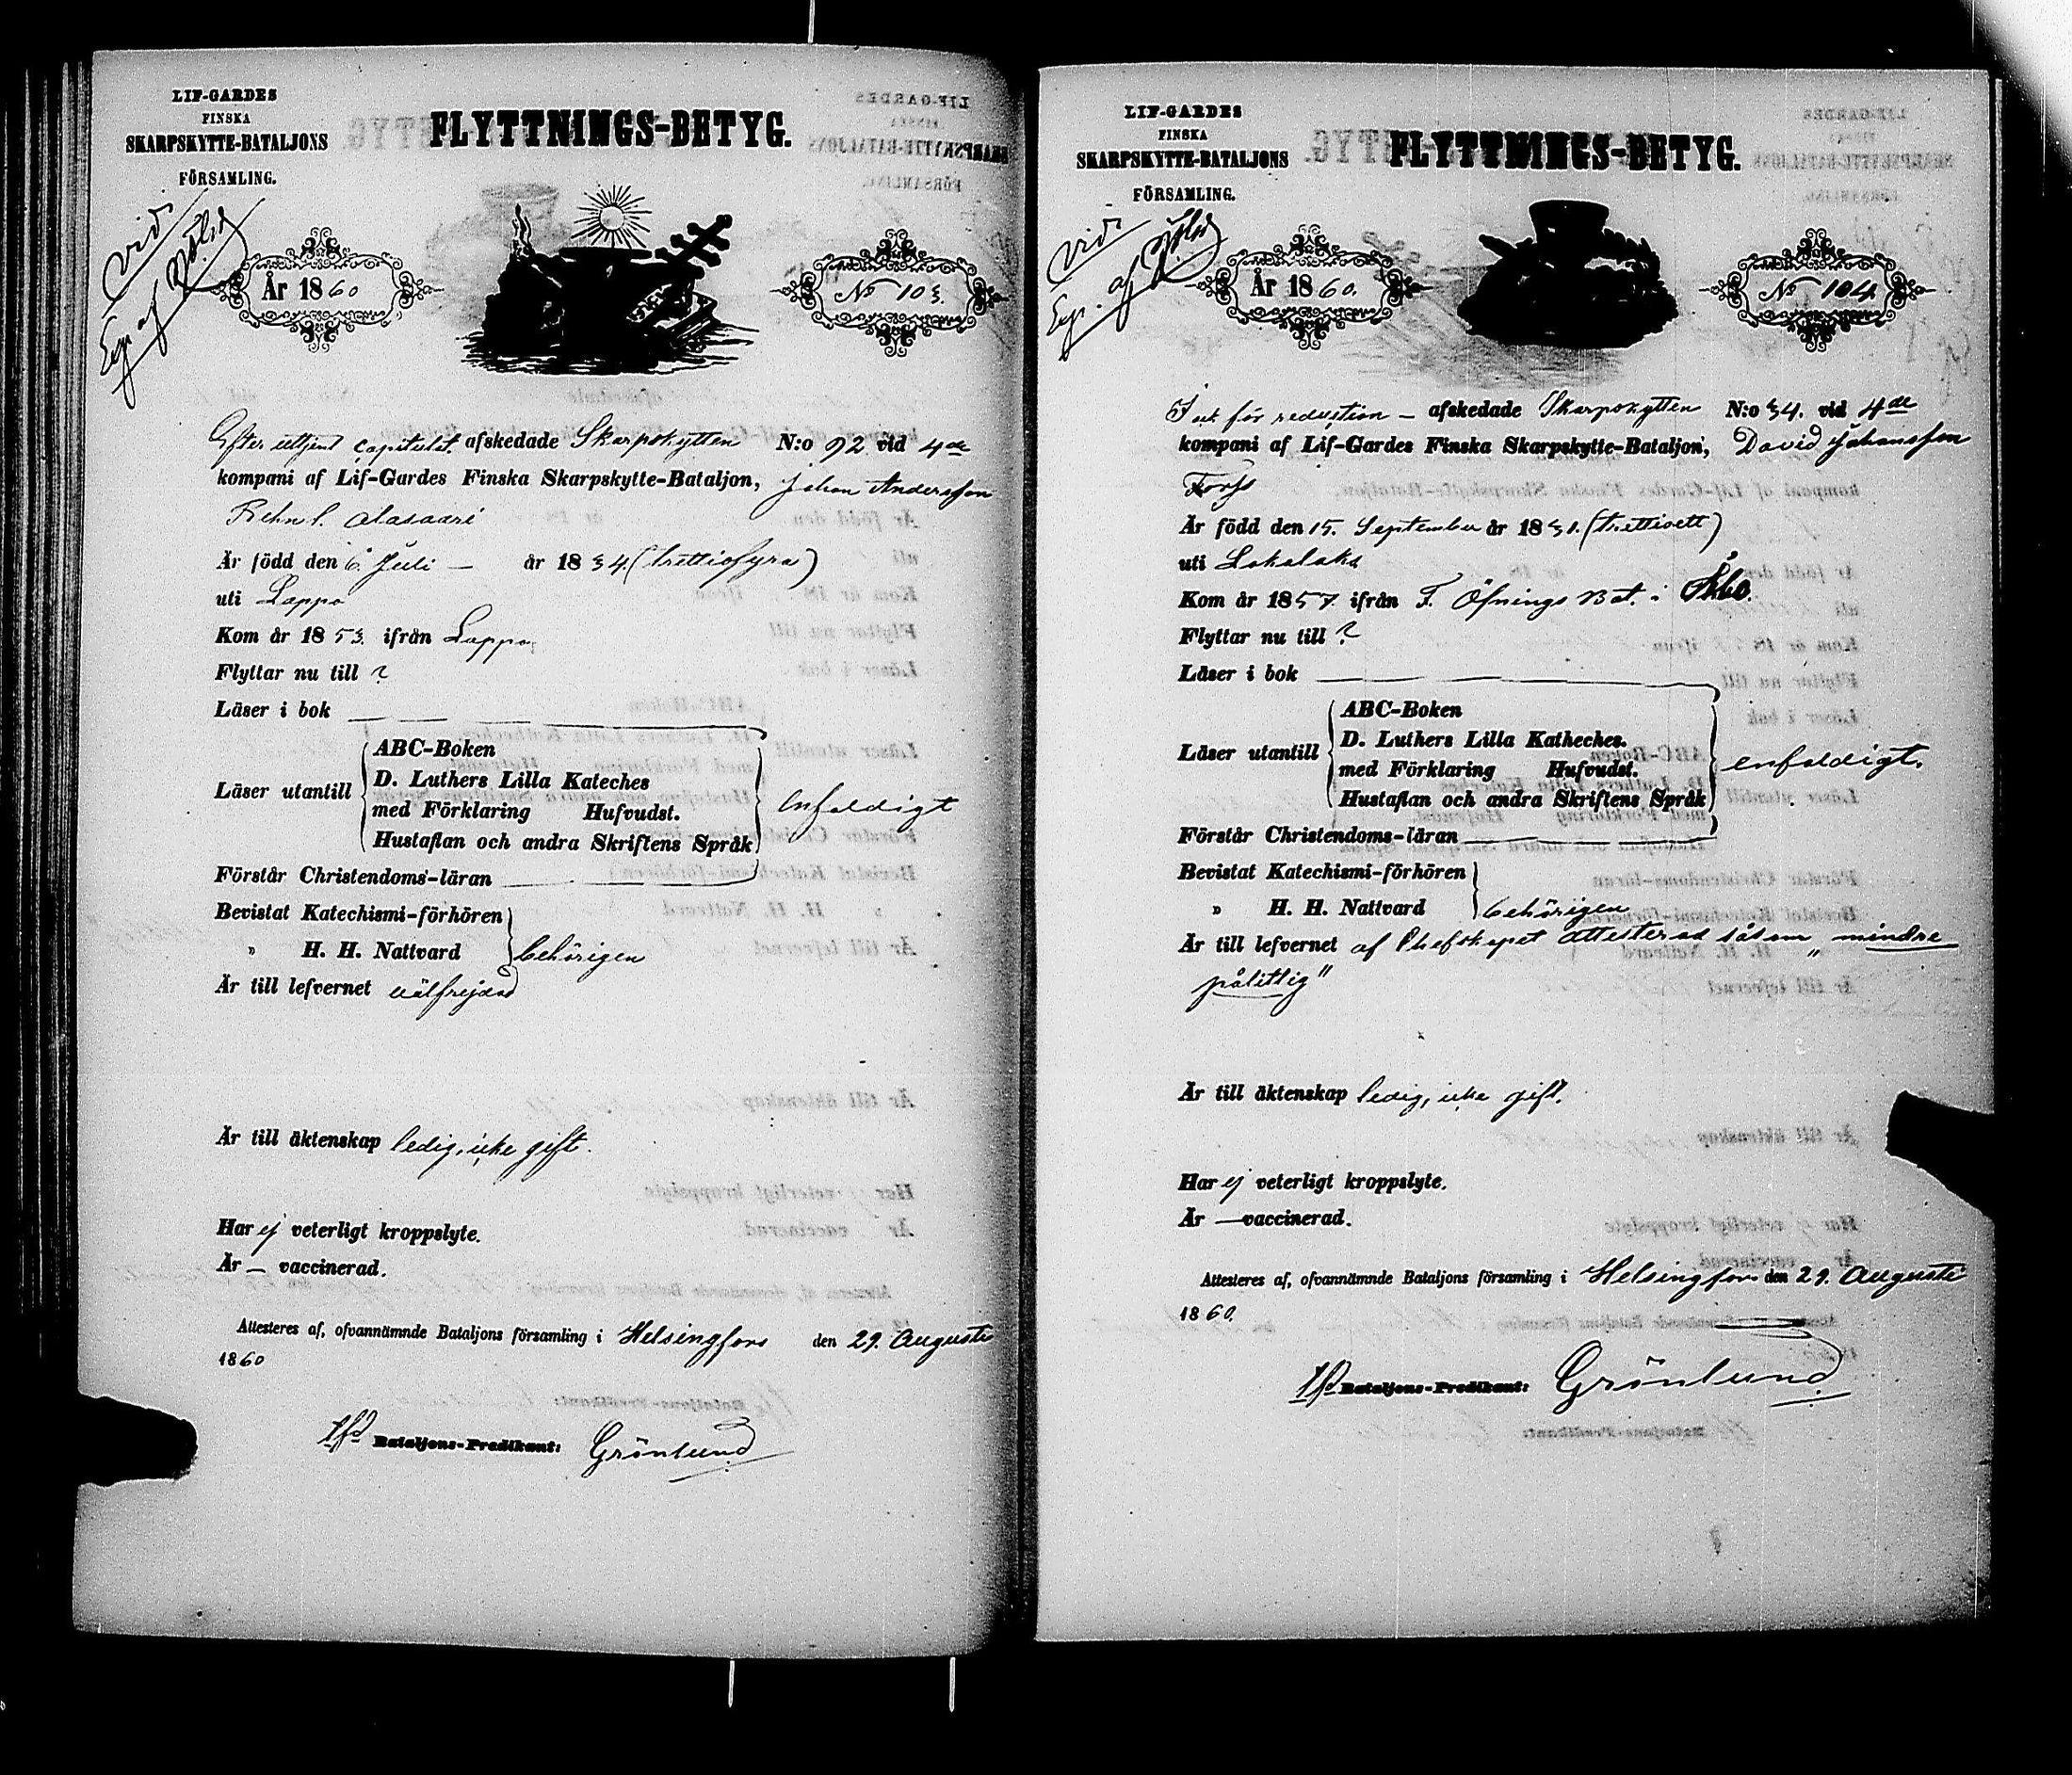 LIF-GARDES
FINSKA
SKARPSKYTTE-BATALJONS
FÖRSAMLING.
FLYTTNINGS-BETYG.
vidi
År 1860
No 103.
Efter uttjent capitulat. afskedade Skarpskytten N:o 92 vid 4de
kompani af Lif-Gardes Finska Skarpskytte-Bataljon, Johan Andersson
Rehn l. Alasaari
Är född den 6. Juli — år 1834 (trettiofyra)
uti Lappo
Kom år 1853. ifrån Lappo.
Flyttar nu till ?
Läser i bok
ABC-Boken
D. Luthers Lilla Kateches
Läser utantill
med Förklaring Hufvudst.
enfaldigt
Hustaflan och andra Skriftens Språk
Förstår Christendoms-läran
Bevistat Katechismi-förhören
" H. H. Nattvard behörigen
Är till lefvernet välfrejdad
Är till äktenskap ledig, icke gift.
Har ej veterligt kroppslyte.
Är — vaccinerad.
Attesteres af, ofvannämnde Bataljons församling i Helsingfors den 29. Augusti
1860
Bataljons-Predikant: Grönlund
LIF-GARDES
FINSKA
SKARPSKYTTE-BATALJONS
FÖRSAMLING.
FLYTTNINGS-BETYG.
vidi
År 1860.
No 104
för reduction — afskedade Skarpskytten N:o 34. vid 4de
kompani af Lif-Gardes Finska Skarpskytte-Bataljon, David Johansson
Forss
Är född den 15. September år 1831. (trettioett)
uti Lokalaks
Kom år 1857. ifrån F. Öfnings Bat. i Åbo.
Flyttar nu till ?
Läser i bok
ABC-Boken
D. Luthers Lilla Katheches.
Läser utantill
med Förklaring Hufvudst.
enfaldigt.
Hustaflan och andra Skriftens Språk
Förstår Christendoms-läran
Bevistat Katechismi-förhören
" H. H. Nattvard behörigen
Är till lefvernet af Chefskapet attesterad såsom „mindre
pålitlig"
Är till äktenskap ledig, icke gift.
Har ej veterligt kroppslyte.
Är — vaccinerad.
Attesteres af, ofvannämnde Bataljons församling i Helsingfors den 29. Augusti
1860.
Bataljons-Predikant: Grönlund